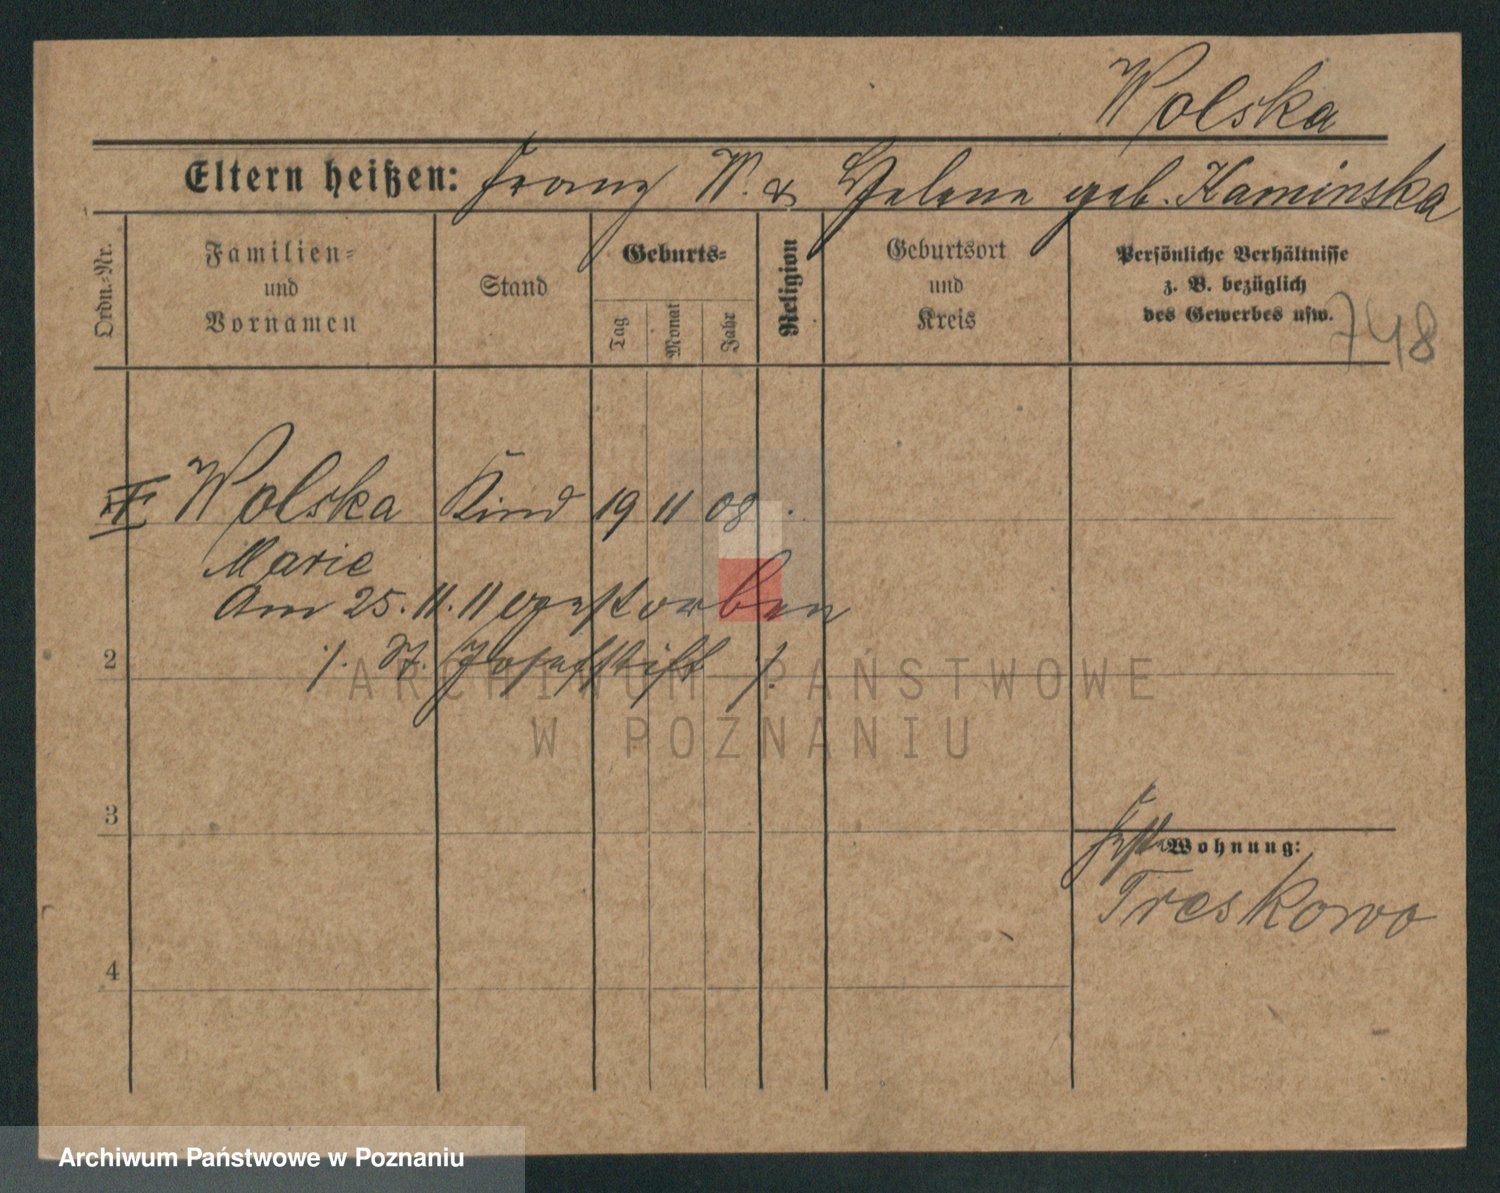 Wolska
Eltern heißen: Franz W. & Helene geb. Kaminska
Ordn.-Nr.
Familien- und Vornamen
Stand
Geburts-
Tag
Monat
Jahr
Religion
Geburtsort und Kreis
Persönliche Verhältnisse
z. B. bezüglich
des Gewerbes usw.
748
Wolska Kind 19 11 08.
Marie
Am 25. 11. 11 gestorben
./. St. Josefstift ./.
2
3
4
Wohnung:
Treskowo
ARCHIWUM PAŃSTWOWE
W POZNANIU
Archiwum Państwowe w Poznaniu